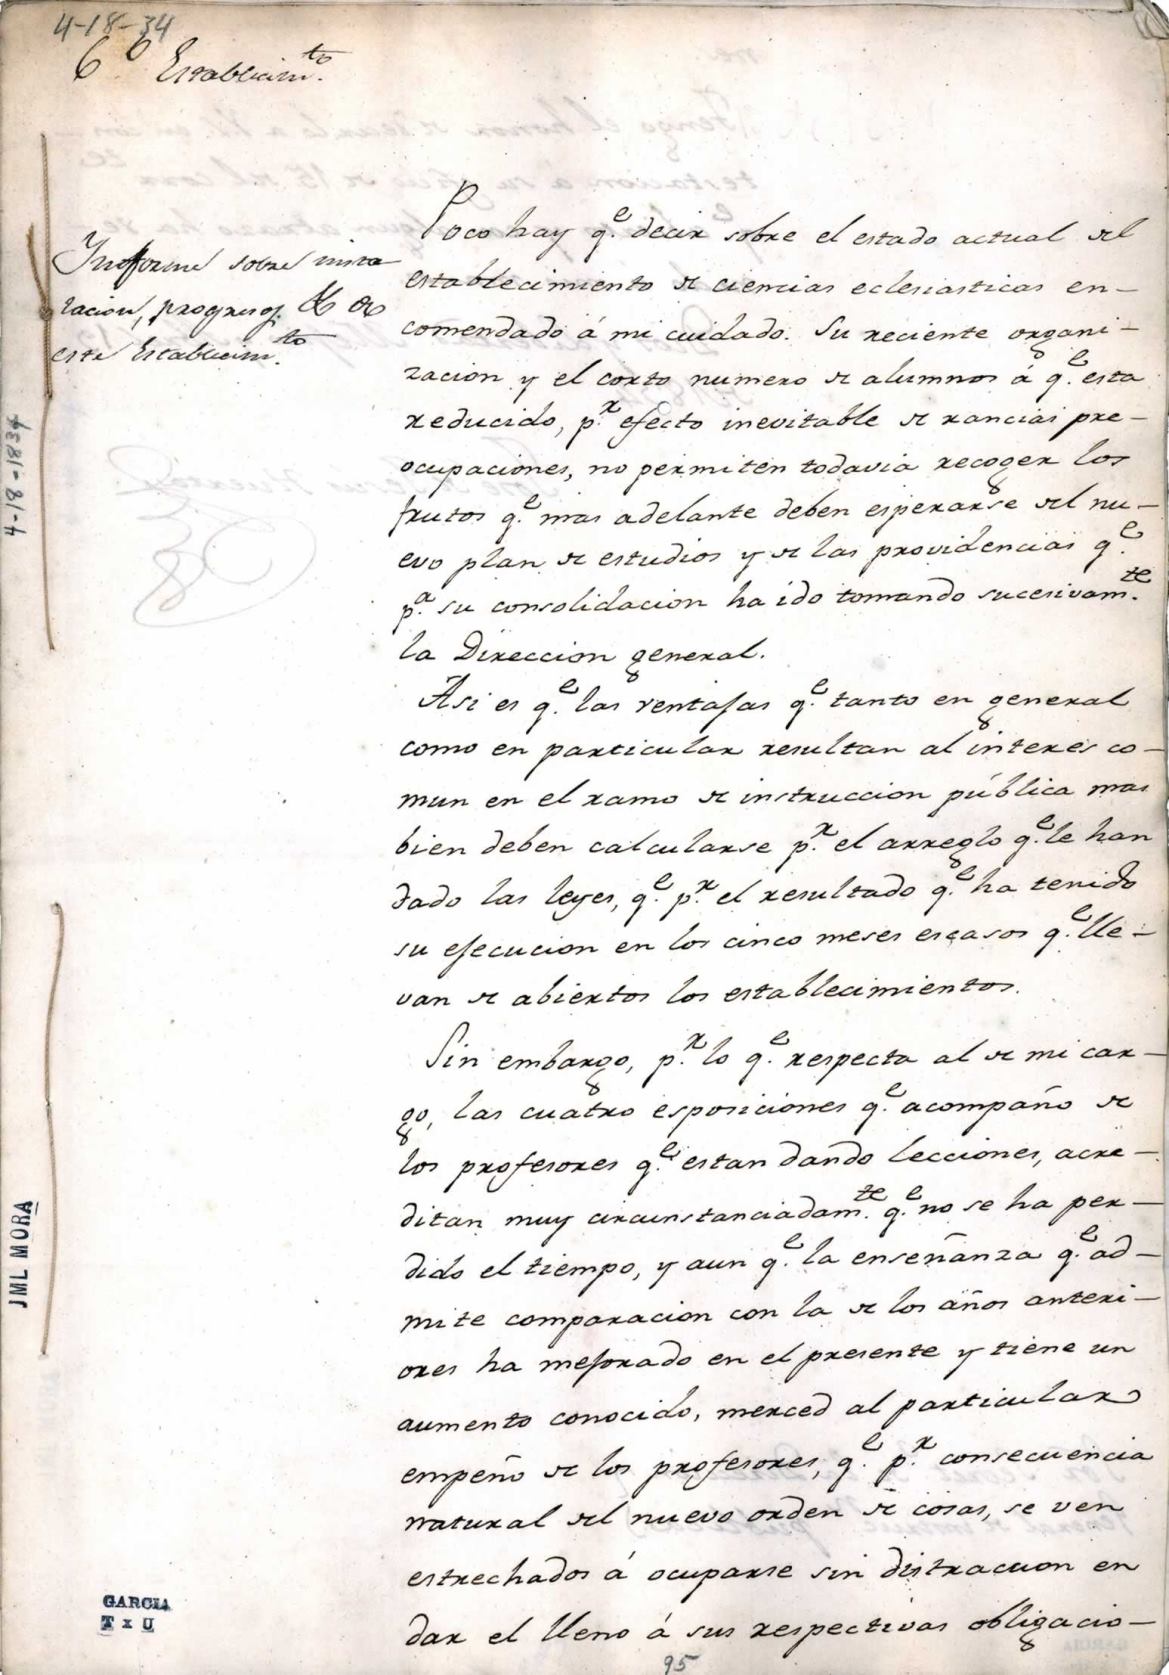 4-18-34
6.º Establecim.to
Informe sobre insta
lacion, progresos, &c &c
este Establecim.to
4-18-1834
Poco hay q.e decir sobre el estado actual del
establecimiento de ciencias eclesiasticas en-
comendado á mi cuidado. Su reciente organi-
zacion y el corto numero de alumnos á q.e esta
reducido, p.r efecto inevitable de rancias pre-
ocupaciones, no permiten todavia recoger los
frutos q.e mas adelante deben esperarse del nu-
evo plan de estudios y de las providencias q.e
p.a su consolidacion ha ido tomando sucesivam.te
la Direccion general.
Asi es q.e las ventajas q.e tanto en general
como en particular resultan al interes co-
mun en el ramo de instruccion pública mas
bien deben calcularse p.r el arreglo q.e le han
dado las leyes, q.e p.r el resultado q.e ha tenido
su ejecucion en los cinco meses escasos q.e lle-
van de abiertos los establecimientos.
Sin embargo, p.r lo q.e respecta al de mi car-
go, las cuatro esposiciones q.e acompaño de
los profesores q.e estan dando lecciones, acre-
ditan muy circunstanciadam.te q.e no se ha per-
dido el tiempo, y aun q.e la enseñanza q.e ad-
mite comparacion con la de los años anteri-
ores ha mejorado en el presente y tiene un
aumento conocido, merced al particular
empeño de los profesores, q.e p.r consecuencia
natural del nuevo orden de cosas, se ven
estrechados á ocuparse sin distraccion en
dar el lleno á sus respectivas obligacio-
JML MORA
GARCIA
T x U
95